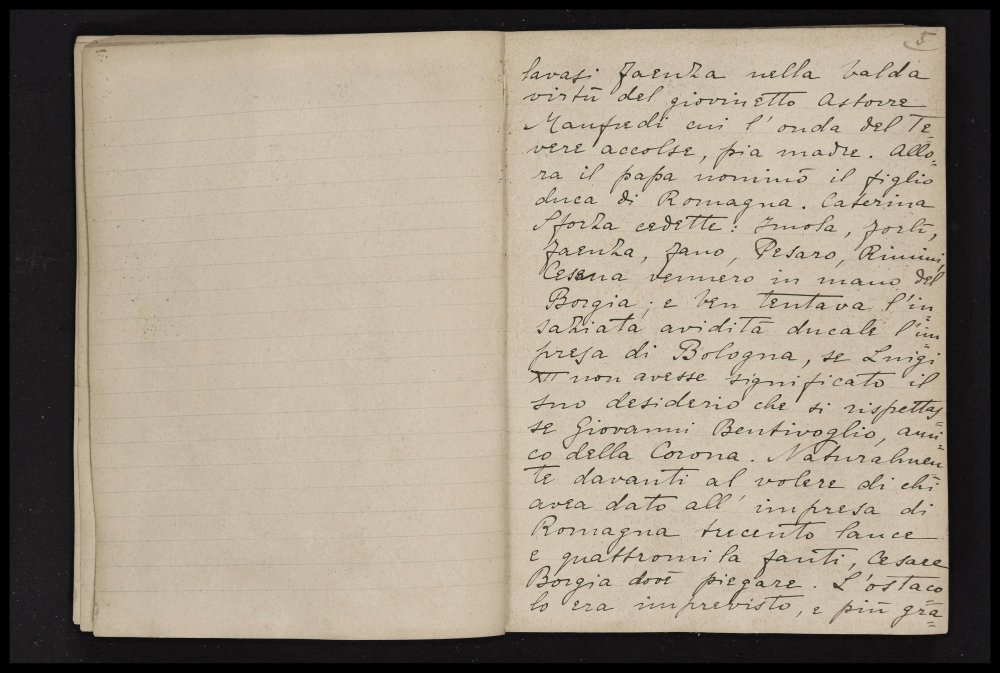 5
lavasi Faenza nella balda
virtù del giovinetto Astorre
Manfredi cui l'onda del Te=
vere accolse, pia madre. Allo=
ra il papa nominò il figlio
duca di Romagna. Caterina
Sforza cedette: Imola, Forlì,
Faenza, Fano, Pesaro, Rimini,
Cesena vennero in mano del
Borgia; e ben tentava l'in=
saziata avidità ducale l'im=
presa di Bologna, se Luigi
XII non avesse significato il
suo desiderio che si rispettas=
se Giovanni Bentivoglio, ami=
co della Corona. Naturalmen=
te davanti al volere di chi
avea dato all'impresa di
Romagna trecento lance
e quattromila fanti, Cesare
Borgia dovè piegare. L'ostaco
lo era imprevisto, e più gra=